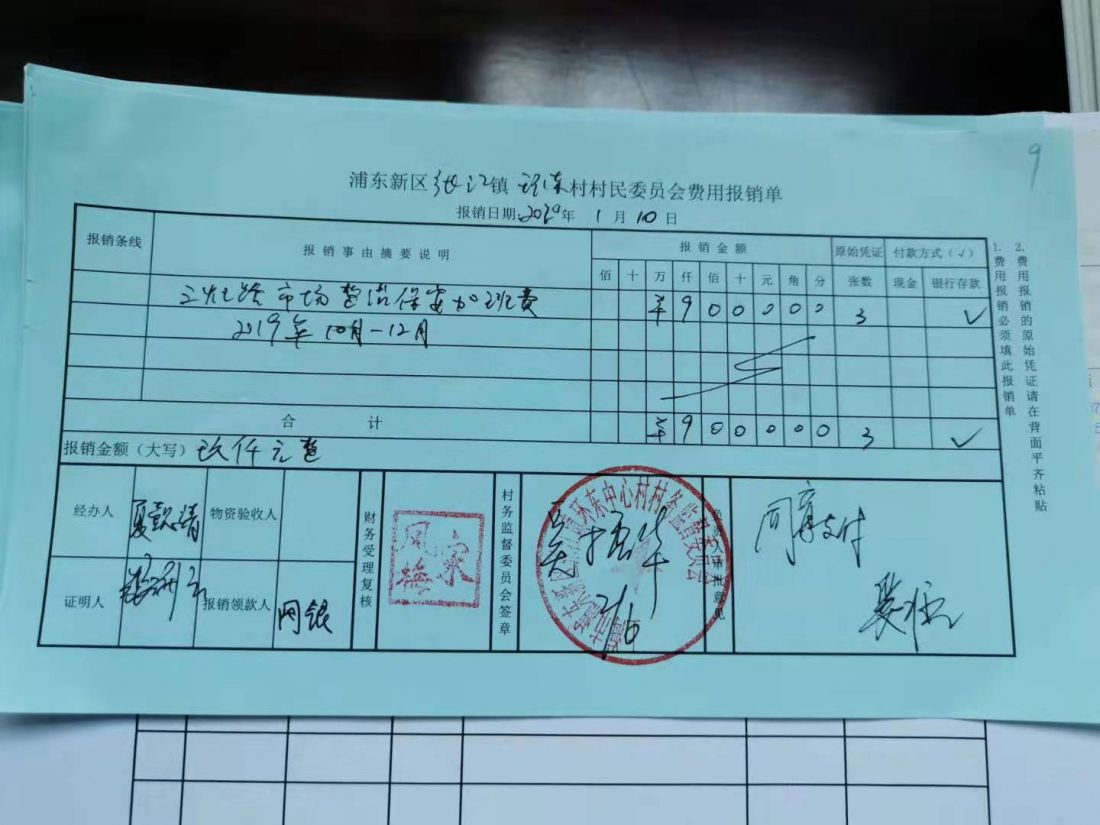 9
浦东新区张江镇环东村村民委员会费用报销单
报销日期:2020年 1月10日
报销条线 报销事由摘要说明 报销金额 原始凭证 付款方式(√)
佰 十 万 仟 佰 十 元 角 分 张数 现金 银行存款
市场整治保安加班费 ¥ 9 0 0 0 0 0 3 √
2019年10月-12月
合计 ¥ 9 0 0 0 0 0 3 √
报销金额(大写) 玖仟元整
经办人 物资验收人
证明人 报销领款人 网银
财务受理复核
村务监督委员会签章
环东中心村村务监督委员会
审批意见
同意支付
1. 费用报销必须填此报销单
2. 费用报销的原始凭证请在背面平齐粘贴